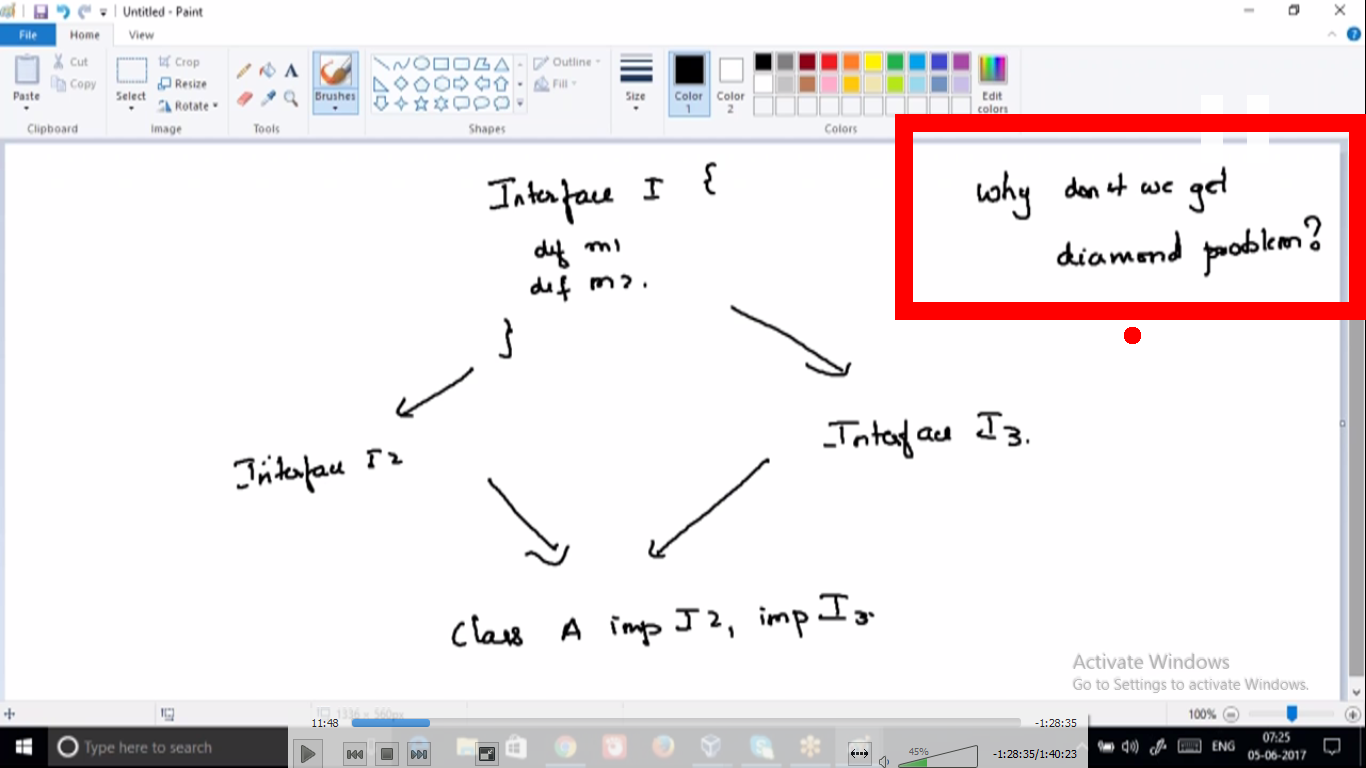 Untitled - Paint
File Home View
Paste Cut Copy Select Crop Resize Rotate Brushes Outline Fill Size Color 1 Color 2 Edit colors
Clipboard Image Tools Shapes Colors
Interface I {
def m1
def m2.
}
why don't we get
diamond problem?
Interface I2
Interface I3.
Class A imp I2, imp I3.
Activate Windows
Go to Settings to activate Windows.
1336 × 560px
100%
11:48 -1:28:35
Type here to search
45%
-1:28:35/1:40:23
ENG
07:25
05-06-2017